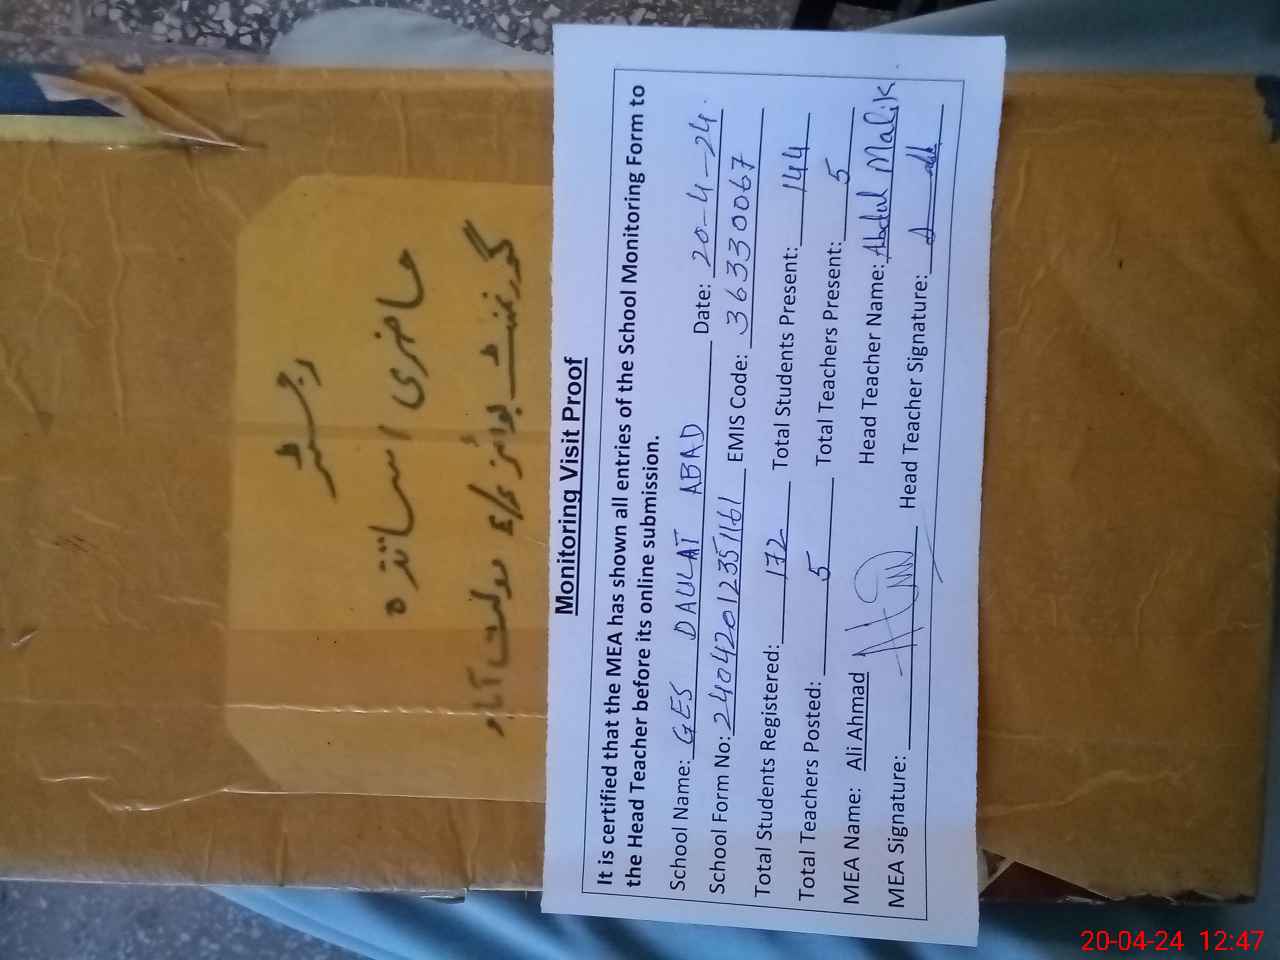 رجسٹر
حاضری اساتذہ
گورنمنٹ بوائز ای/ایس دولت آباد
Monitoring Visit Proof
It is certified that the MEA has shown all entries of the School Monitoring Form to
the Head Teacher before its online submission.
School Name: GES DAULAT ABAD Date: 20-4-24.
School Form No: 240420123351161 EMIS Code: 36330067
Total Students Registered: 172 Total Students Present: 144
Total Teachers Posted: 5 Total Teachers Present: 5
MEA Name: Ali Ahmad Head Teacher Name: Abdul Malik
MEA Signature: Head Teacher Signature:
20-04-24 12:47